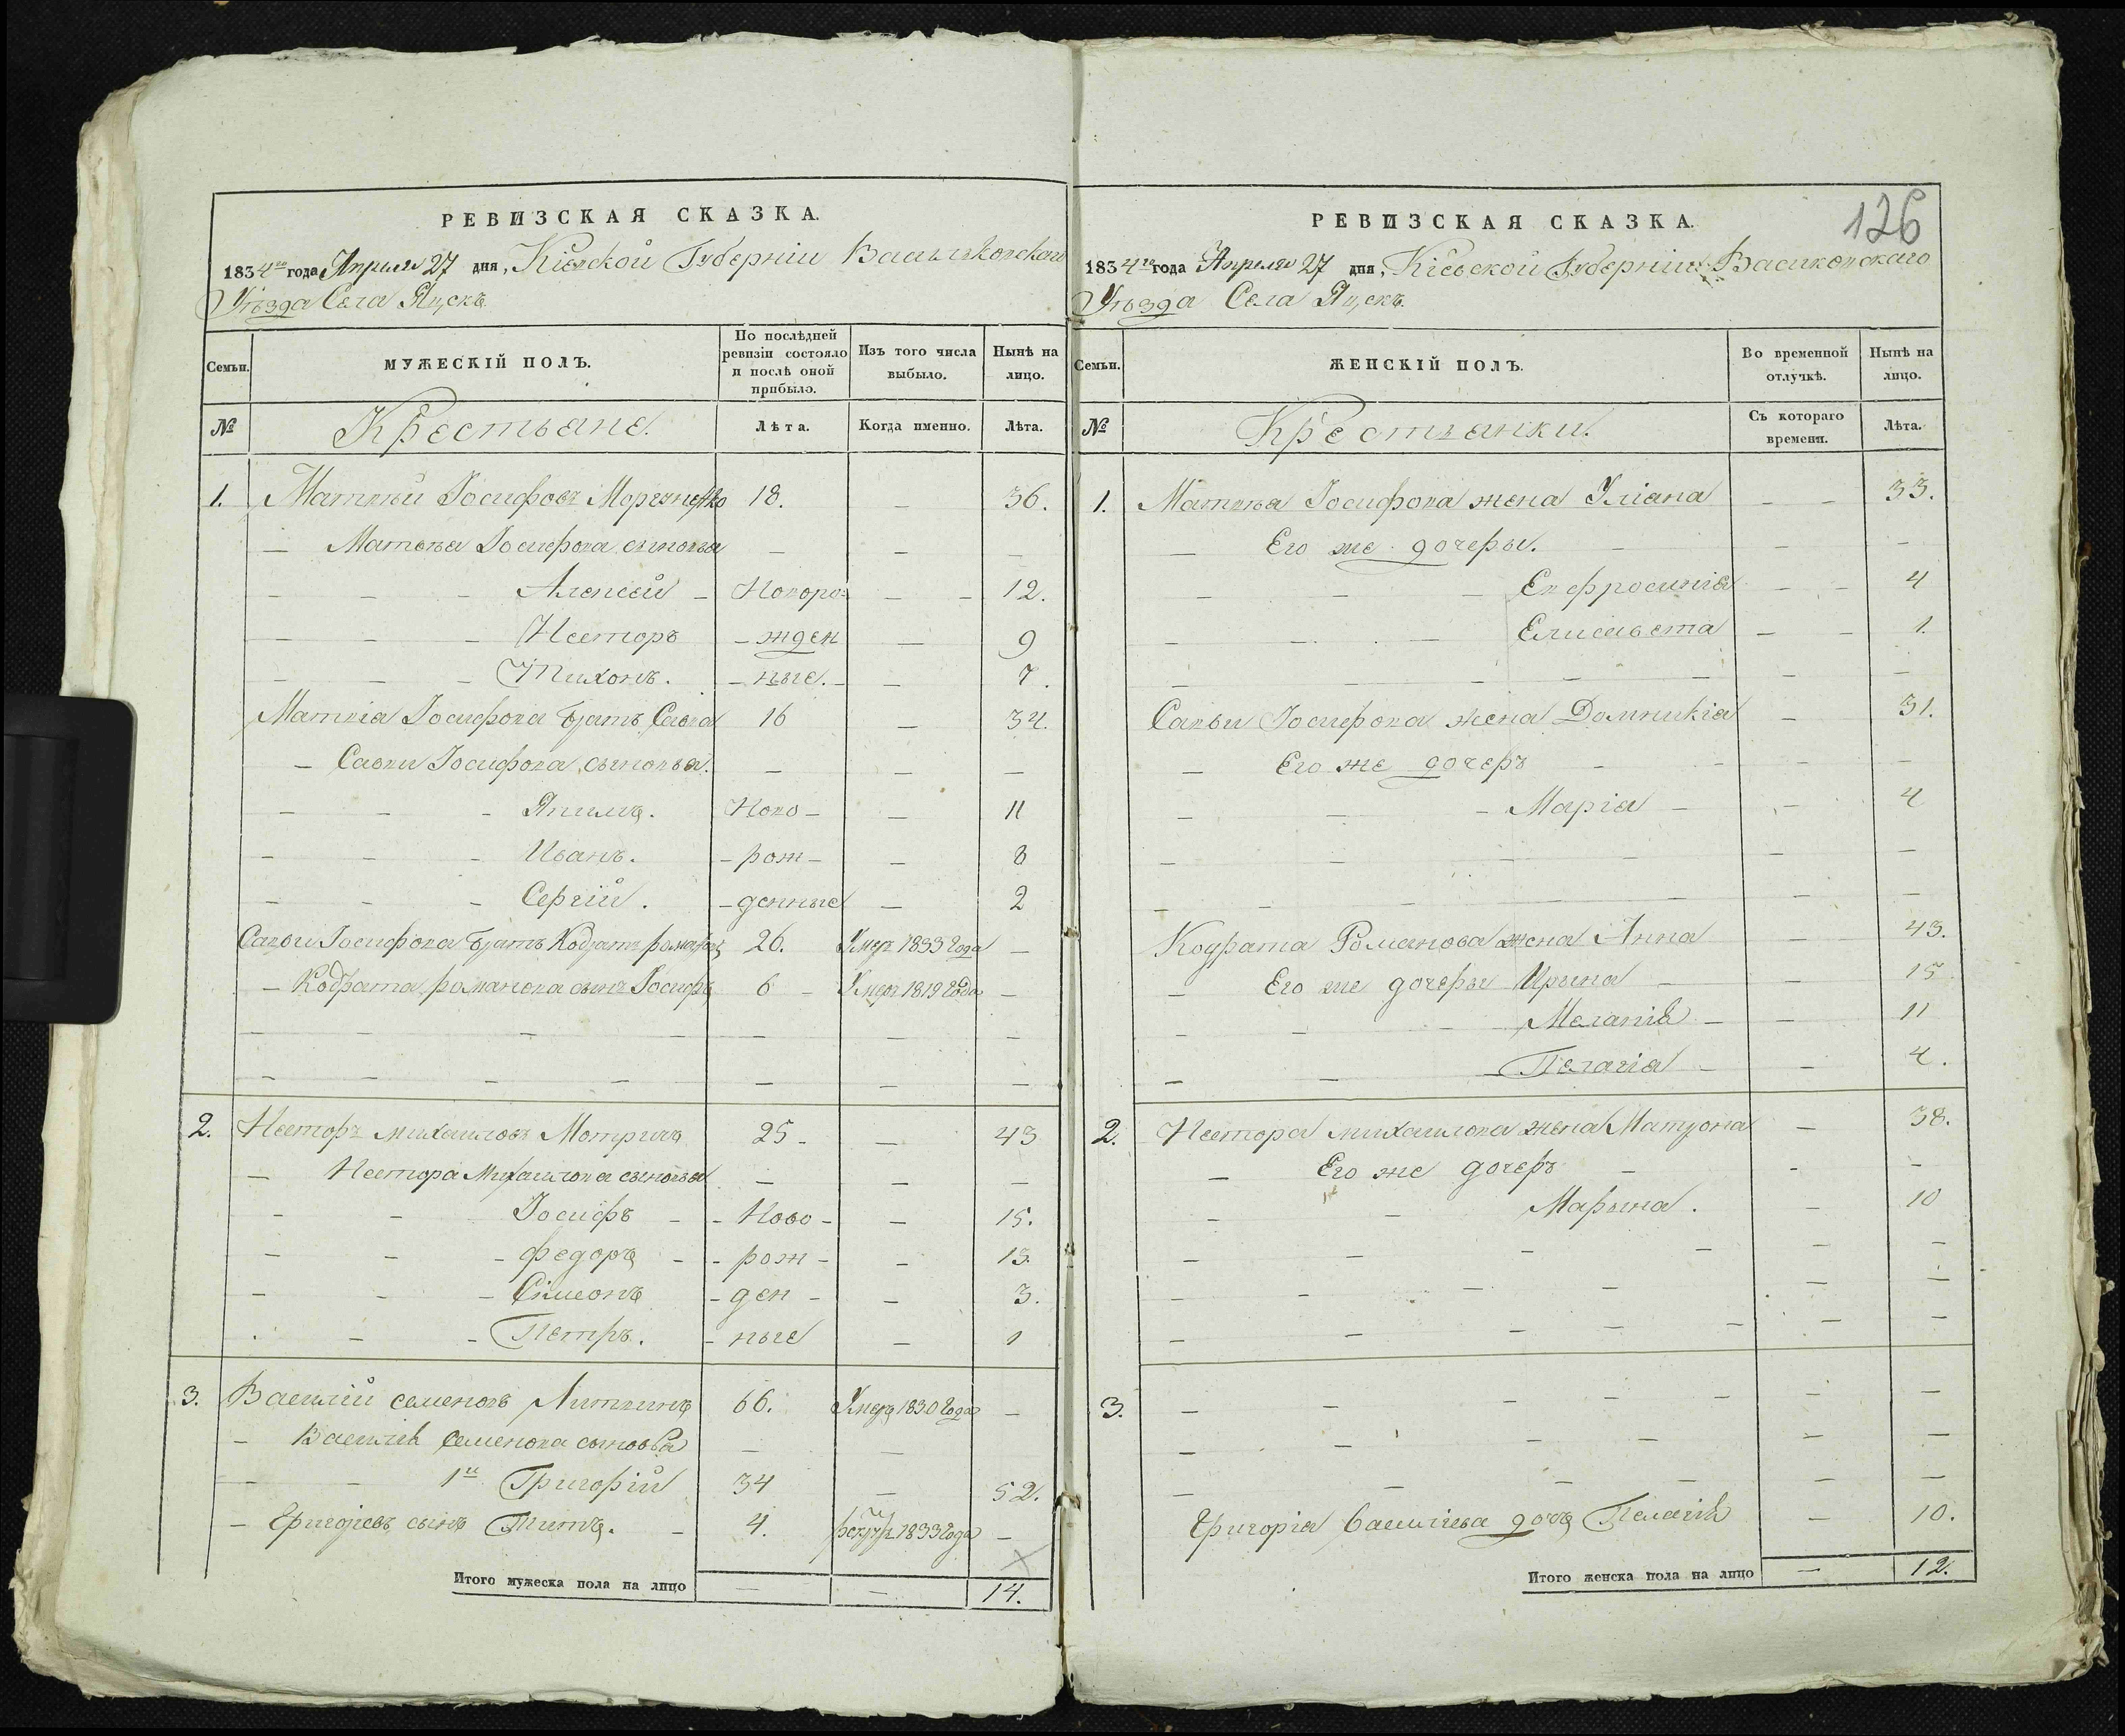 РЕВИЗСКАЯ СКАЗКА.
1834го года Апреля 27 дня, Кіевской Губерніи Васильковскаго
Уѣзда Села Яцекъ
Семьи.
МУЖЕСКІЙ ПОЛЪ.
По послѣдней ревизіи состояло и послѣ оной прибыло.
Изъ того числа выбыло.
Нынѣ на лицо.
№ Крестьяне. Лѣта. Когда именно. Лѣта.
1. Матвѣй Іосифовъ 18. — 36.
— Матвѣя Іосифова сыновья — — —
— — — Алексей — Новоро= — — 12.
— — — Несторъ — жден — 9
— — — Тихонъ. — ные. — — 7.
Матвіа Іосифова братъ Савва 16 — 34.
— Савви Іосифова сыновья. — — —
— — — Якимъ. Ново — — 11
— — — Иванъ. — рож — — 8
— — — Сергій. — денные — 2
Савви Іосифова братъ Кодратъ романовъ 26. Умеръ 1833 года —
— Кодрата романова сынъ Іосифъ 6 — Умеръ 1819 года —
2. Несторъ михаиловъ 25 — — 43
— Нестора Михаилова сыновья — — —
— — Іосифъ — — Ново — — 15.
— — — Федоръ — — рож — — 13.
— — — Сімеонъ — ден — — 3.
— — Петръ. — ные — 1
3. Василій семеновъ 66. Умеръ 1830 года —
— Василія Семенова сыновья — —
— — 1й Григорій 34 — 52.
— Григоріевъ сынъ Титъ. — 4. рекрут 1833 года —
Итого мужеска пола на лицо — — 14.
126
РЕВИЗСКАЯ СКАЗКА.
1834го года Апреля 27 дня, Кіевской Губерніи Васиковскаго
Уѣзда Села Яцекъ.
Семьи.
ЖЕНСКІЙ ПОЛЪ.
Во временной отлучкѣ.
Нынѣ на лицо.
№ Крестьянки. Съ котораго времени. Лѣта.
1. Матвѣя Іосифова жена Уліана — — 33.
— Его же дочеры. — — —
— — — Евфросинія — — 4
— — — Елисавета — — 1.
Савви Іосифова жена Домникія — 31.
— Его же дочеръ — — —
— — — Марія — — 4
Кодрата Романова жена Анна — 43.
— Его же дочеры Ирина — — 15
— — — Меланія — — 11
— — — Пелагія — — 4.
2. Нестора михаилова жена Матрона — 38.
— Его же дочеръ — - -
— — Марына. — 10
3.
Григорія Василіева дочъ Пелагія — 10.
Итого женска пола на лицо — 12.